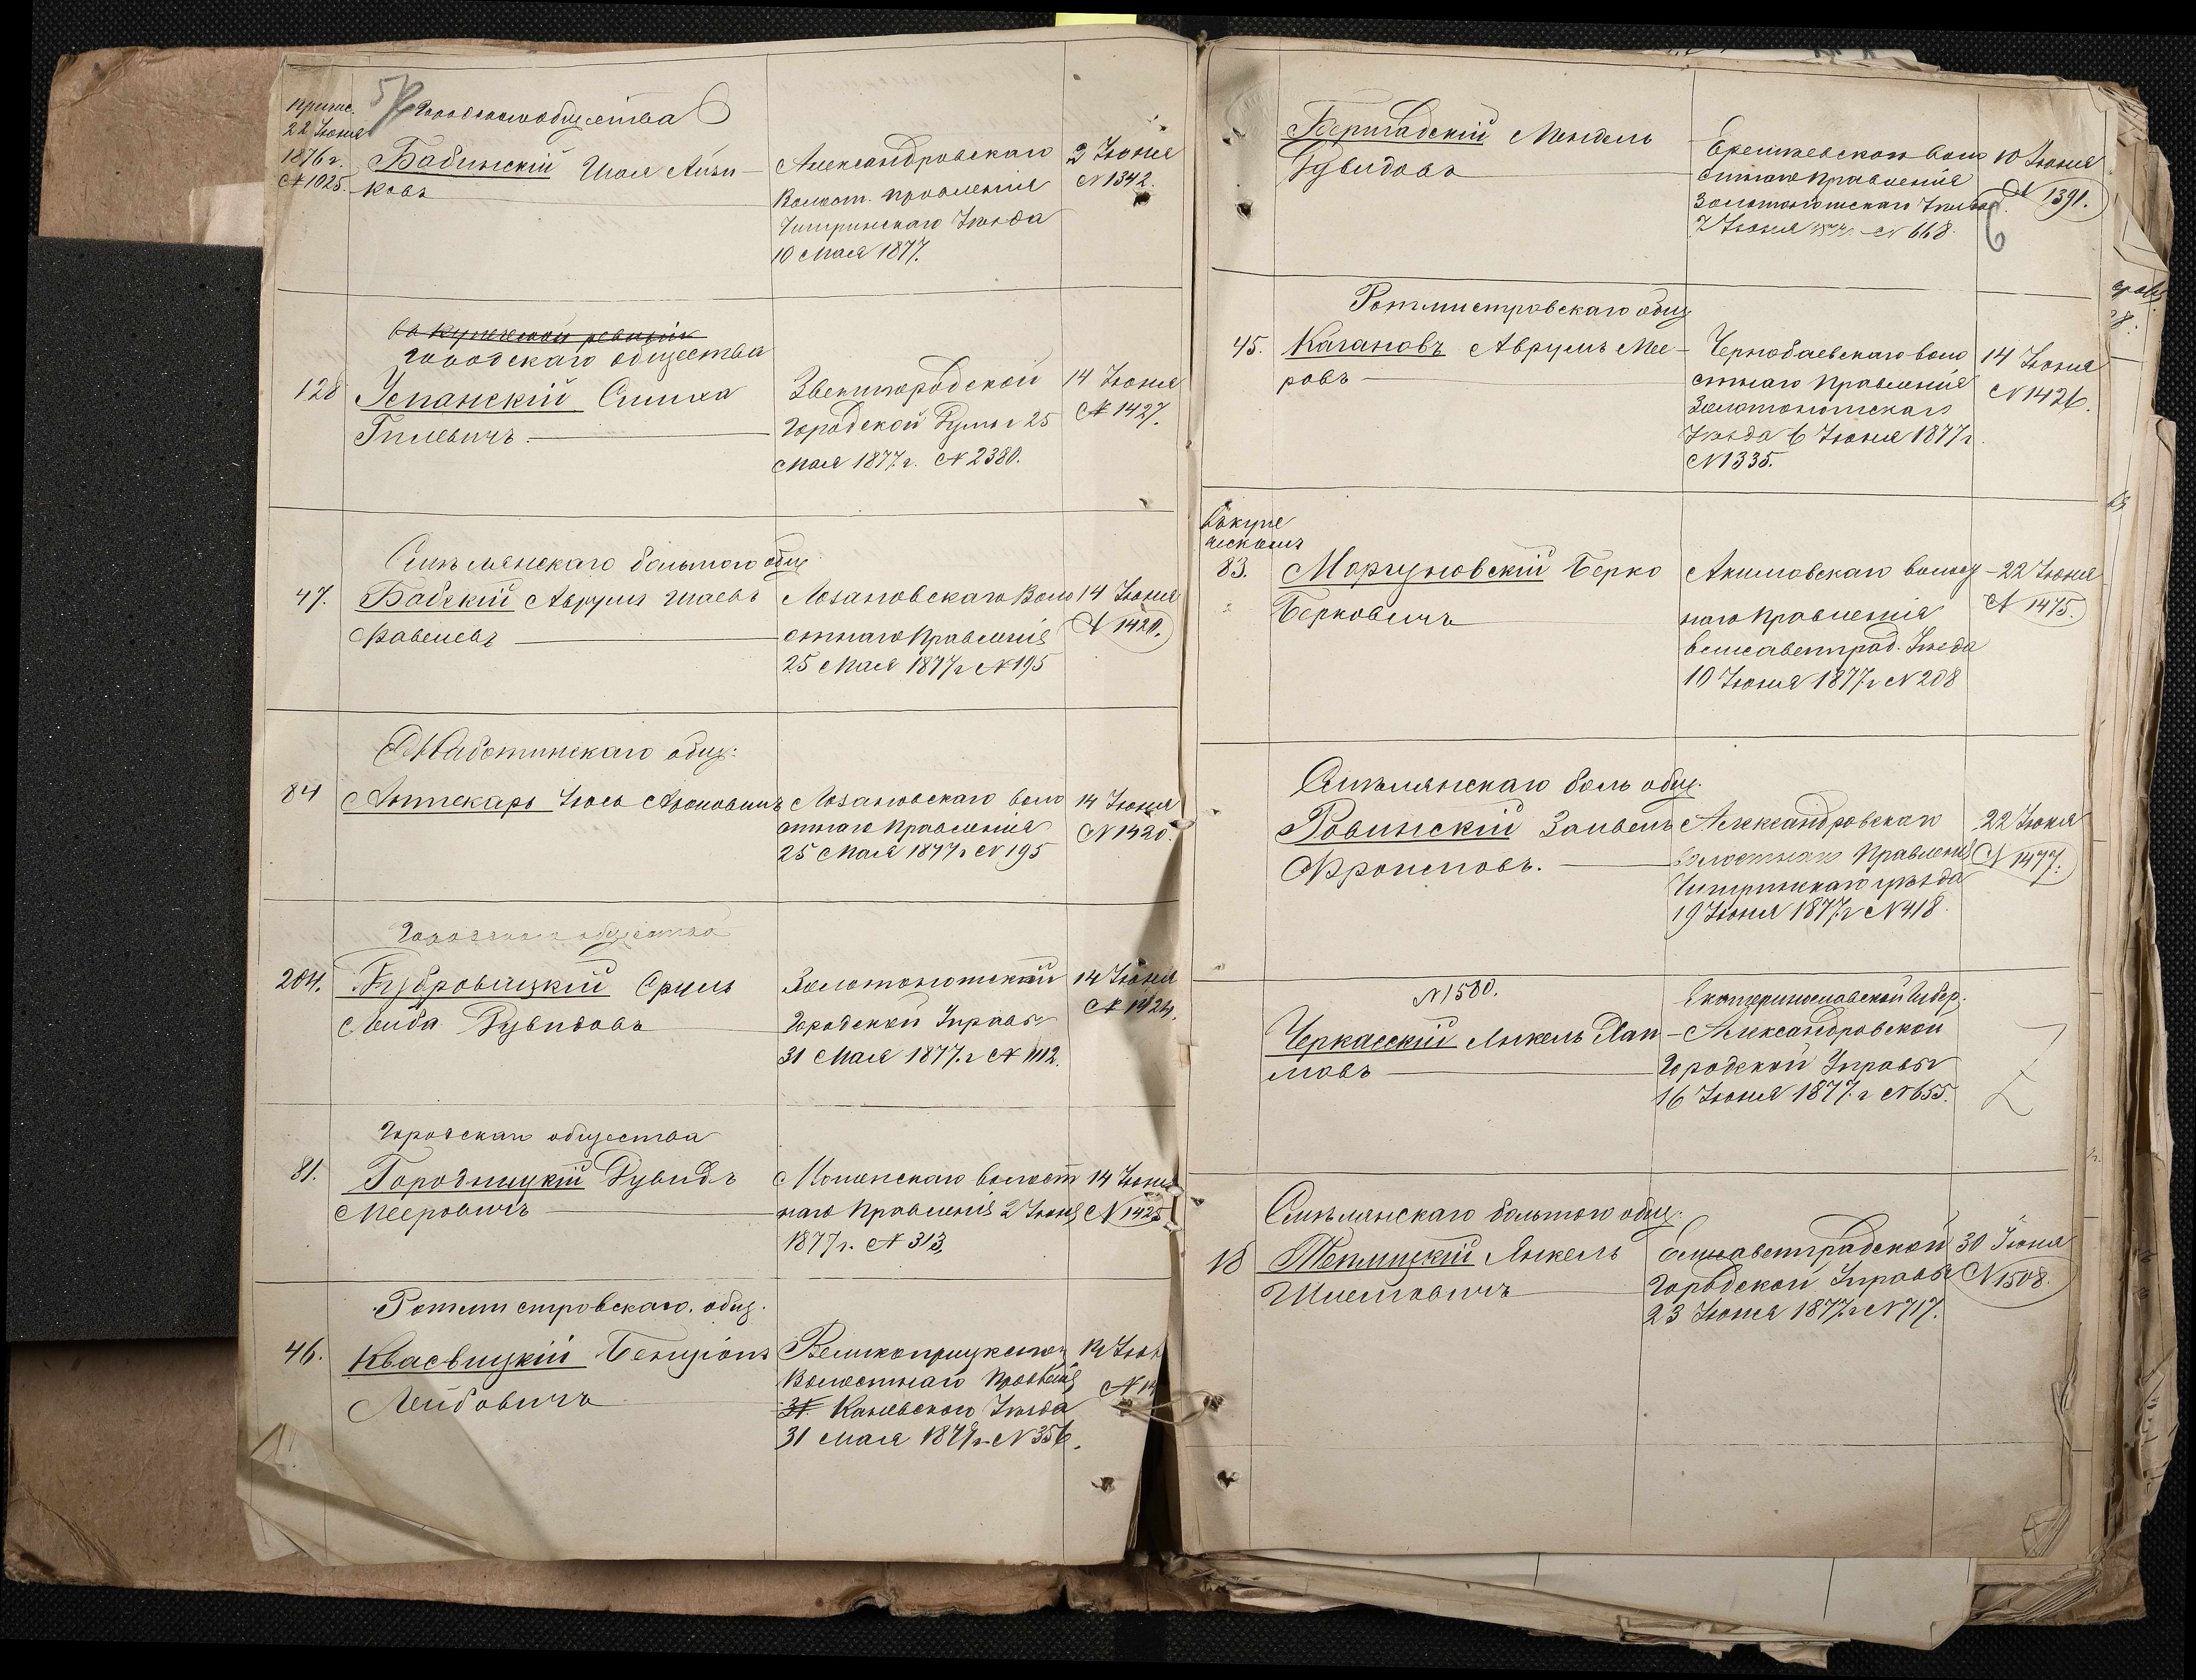 припис.
22 Іюня
1876 г.
№ 1025.
5
Городского общества
Бабинскій Шоя Айзи-
ковъ
Александровскаго
Волост. правленія
Чигринскаго Уѣзда
10 Мая 1877.
2 Іюня
№ 1342.
въ купеческой ревизіи
городскаго общества
128
Успанскій Симха
Гилевичъ.
Звенигородской
Городской Думы 25
Мая 1877 г. № 2380.
14 Іюня
№ 1427.
Смѣлянскаго большого общ.
47.
Бабскій Аврумъ Шаевъ
Лозановскаго Воло
стнаго Правленія
25 Мая 1877 г № 195
14 Іюня
№ 1420.
Жаботинскаго общ:
84
Аптекарь Іось Ароновичъ
Лозановскаго воло
стнаго Правленія
25 Мая 1877 г № 195
14 Іюня
№ 1420.
Городскаго общества
204.
Дубровицкій Сруль
Лейба Дувидовъ
Золотоношской
Городской Управы
31 Мая 1877. г № 1112.
14 Іюня
№ 1424.
Городскаго общества
81.
Городницкій Дувидъ
Мееровичъ
волост
наго Правленія 2 Іюня
1877 г. № 313,
14 Іюня
№ 1425
Ротмистровскаго. общ.
46.
Квасвицкій Бенціонъ
Лейбовичъ
Великоприцкаго
Волостнаго Правленія
31. Каневскаго Уѣзда
31 Мая 1877 г. № 356.
14 Іюн
№ 14
Беришадскій Мендель
Дувидовъ
Еремѣевскаго воло
стнаго Правленія
Золотоношскаго Уѣзда
7 Іюня 1877 г. № 668.
10 Іюня
№ 1391.
6
Ротмистровскаго общ
45.
Кагановъ Аврумъ Мее-
ровъ
Чернобаевскаго воло
стнаго Правленія
Золотоношскаго
Уѣзда 6 Іюня 1877 г.
№ 1335.
14 Іюня
№ 1426.
Въ купе
ческомъ
83.
Моргуновскій Берко
Берковичъ
Акимовскаго волост-
наго Правленія
Елисаветград. Уѣзда
10 Іюня 1877. г № 208
22 Іюня
№ 1475.
Смѣлянскаго боль общ.
Ровинскій Занвель
Фроимовъ.
Александровскаго
волостнаго Правленія
Чигринскаго уѣзда
19 Іюня 1877. г № 418.
22 Іюня
№ 1477.
№ 1580.
Черкасскій Янкель Хаи-
мовъ
Екатеринославской Губер.
Александровской
Городской Управы
16 Іюня 1877. г № 655.
Смѣлянскаго большого общ:
18
Теплицкій Янкель
Шлемовичъ
Елисаветградской
Городской Управы
23 Іюня 1877. г № 717.
30 Іюня
№ 1508.